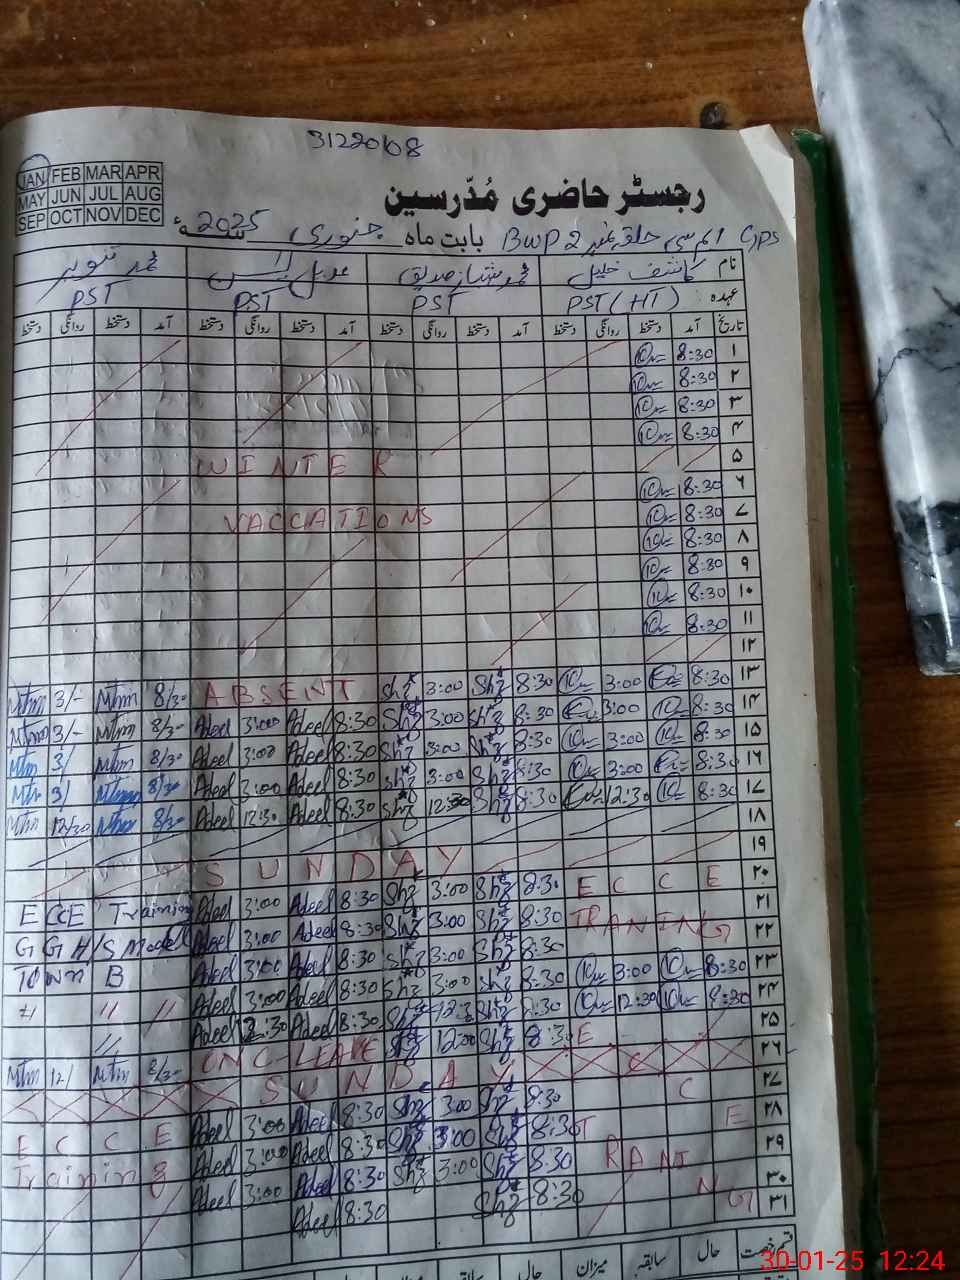 31220108
JAN FEB MAR APR
MAY JUN JUL AUG
SEP OCT NOV DEC
رجسٹر حاضری مُدّرسین
GPS ایم سی حلقہ نمبر 2 BWP بابت ماہ جنوری 2025 سنہء
نام کاشف خلیل محمد شہباز صدیق عدیل یونس محمد تنویر
عہدہ PST (HT) PST PST PST
تاریخ آمد دستخط روانگی دستخط آمد دستخط روانگی دستخط آمد دستخط روانگی دستخط آمد دستخط روانگی دستخط
۱ 8:30
۲ 8:30
۳ 8:30
۴ 8:30
۵ WINTER
۶ 8:30
۷ 8:30 VACCIATIONS
۸ 8:30
۹ 8:30
۱۰ 8:30
۱۱ 8:30
۱۲
۱۳ 8:30 3:00 8:30 Shz 3:00 Shz ABSENT 8/30 Mtm 3/- Mtm
۱۴ 8:30 3:00 8:30 Shz 3:00 Shz 8:30 Adeel 3:00 Adeel 8/30 Mtm 3/- Mtm
۱۵ 8:30 3:00 8:30 Shz 3:00 Shz 8:30 Adeel 3:00 Adeel 8/30 Mtm 3/ Mtm
۱۶ 8:30 3:00 8:30 Shz 3:00 Shz 8:30 Adeel 3:00 Adeel 8/30 Mtm 3/ Mtm
۱۷ 8:30 12:30 8:30 Shz 12:30 Shz 8:30 Adeel 12:30 Adeel 8/30 Mtm 12/30 Mtm
۱۸
۱۹ SUNDAY
۲۰ ECCE 8:30 Shz 3:00 Shz 8:30 Adeel 3:00 Adeel ECCE Training
۲۱ TRANING 8:30 Shz 3:00 Shz 8:30 Adeel 3:00 Adeel G G H/S Model
۲۲ 8:30 Shz 3:00 Shz 8:30 Adeel 3:00 Adeel Town B
۲۳ 8:30 3:00 8:30 Shz 3:00 Shz 8:30 Adeel 3:00 Adeel " " "
۲۴ 8:30 12:30 8:30 Shz 12:30 Shz 8:30 Adeel 12:30 Adeel "
۲۵ E 8:30 Shz 12:00 Shz ONC LEAVE 8/30 Mtm 12/ Mtm
۲۶ C SUNDAY
۲۷ C 8:30 Shz 3:00 Shz 8:30 Adeel 3:00 Adeel ECCE
۲۸ E T 8:30 Shz 3:00 Shz 8:30 Adeel 3:00 Adeel Training
۲۹ RANI 8:30 Shz 3:00 Shz 8:30 Adeel 3:00 Adeel
۳۰ NG 8:30 Shz 8:30 Adeel
۳۱
قسم رخصت حال سابقہ میزان حال سابقہ میزان حال
30-01-25 12:24